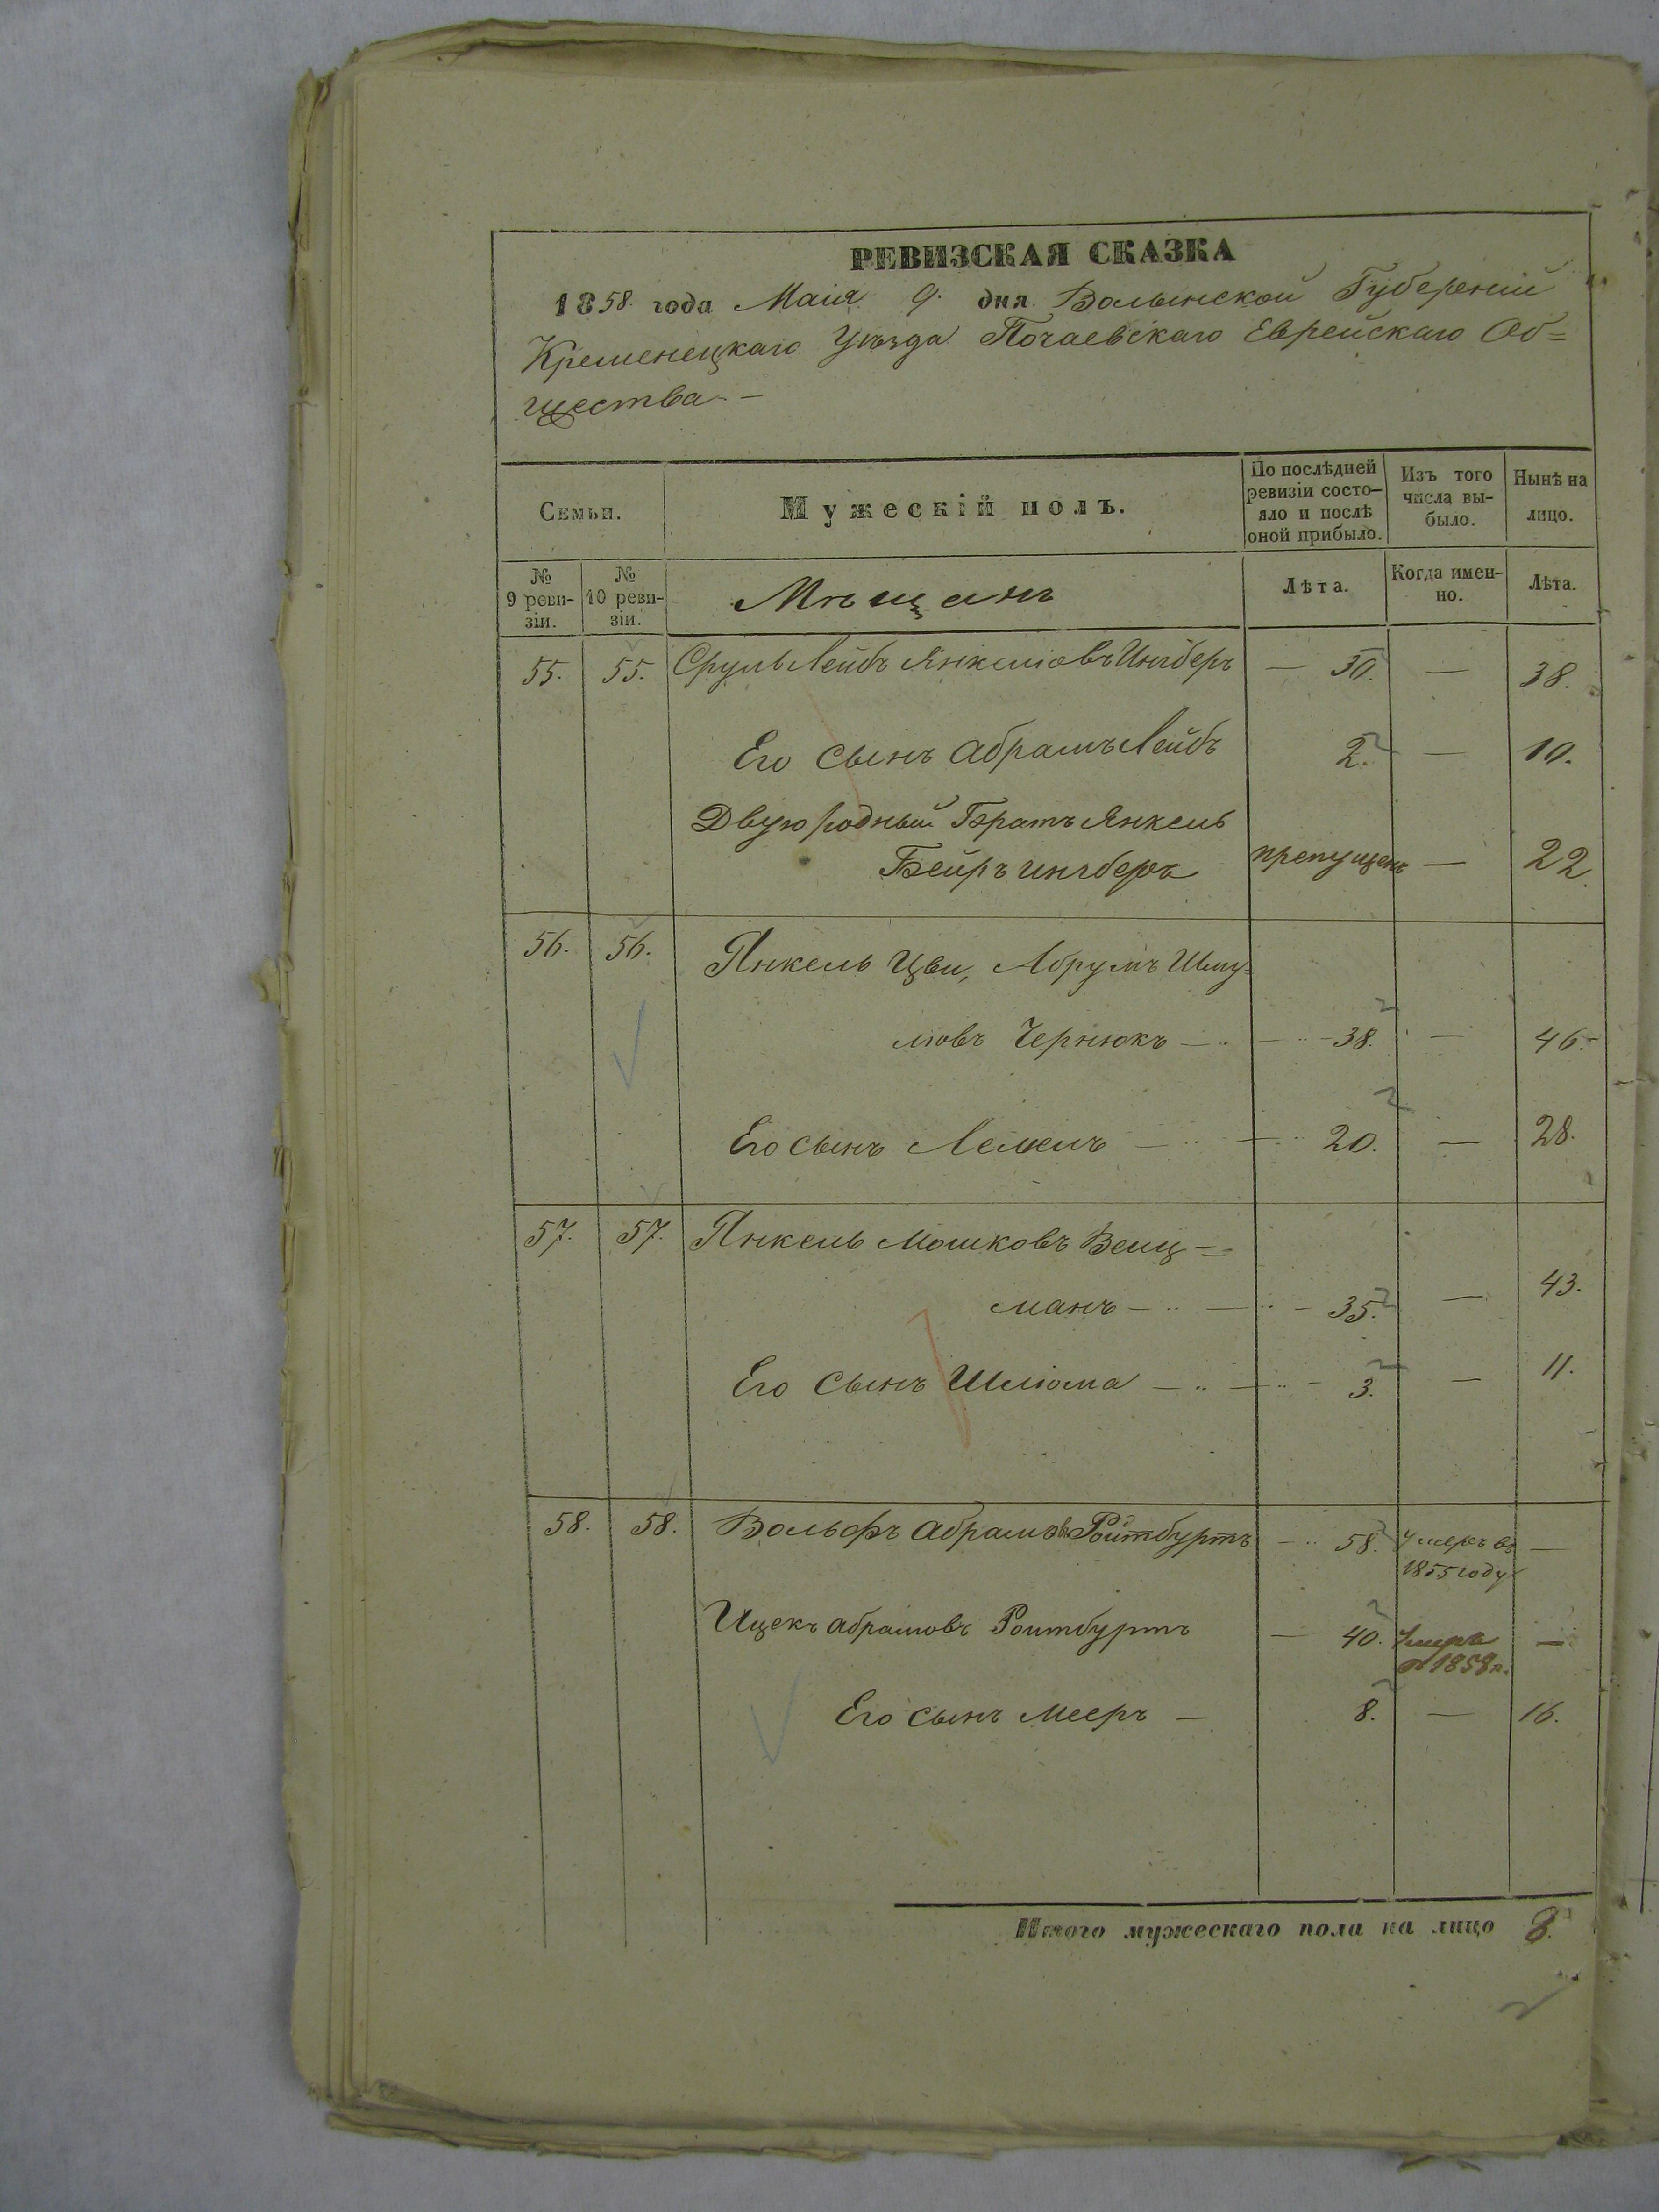 РЕВИЗСКАЯ СКАЗКА
1858 года Маія 9. дня Волынской Губерніи
Кременецкаго Уѣзда Почаевскаго Еврейскаго Об=
щества. —
Семьи.
Мужескій полъ.
По послѣдней ревизіи состо- яло и послѣ оной прибыло.
Изъ того числа вы- было.
Нынѣ на лицо.
№ 9 реви- зіи.
№ 10 реви- зіи.
Мѣщанъ
Лѣта.
Когда имен- но.
Лѣта.
55. 55. Сруль Лейбъ Янкеліовъ Ингберъ — 30. — 38.
Его сынъ Абрамъ Лейбъ 2. — 10.
Двуюродный Братъ Янкель
Бейръ Ингберъ препущенъ — 22.
56. 56. Янкель Цви, Абрумъ Шму-
ліовъ Чернюкъ — 38. — 46.
Его сынъ Лемель — 20. — 28.
57. 57. Янкель Мошковъ Вели-
манъ — 35. — 43.
Его сынъ Шліома — 3. — 11.
58. 58. Вольфъ Абрамовъ Ройтбуртъ — 58. Умеръ въ —
1855 году
Ицекъ Абрамовъ Роитбуртъ — 40. Умеръ —
1858 г.
Его сынъ Мееръ — 8. — 16.
Итого мужескаго пола на лицо 8.